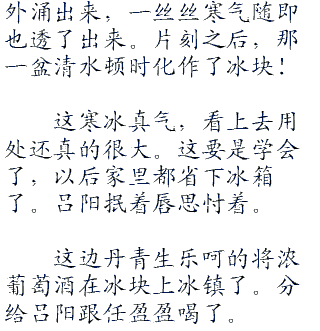 外涌出来，一丝丝寒气随即
也透了出来。片刻之后，那
一盆清水顿时化作了冰块！
这寒冰真气，看上去用
处还真的很大。这要是学会
了，以后家里都省下冰箱
了。吕阳抿着唇思忖着。
这边丹青生乐呵的将浓
葡萄酒在冰块上冰镇了。分
给吕阳跟任盈盈喝了。